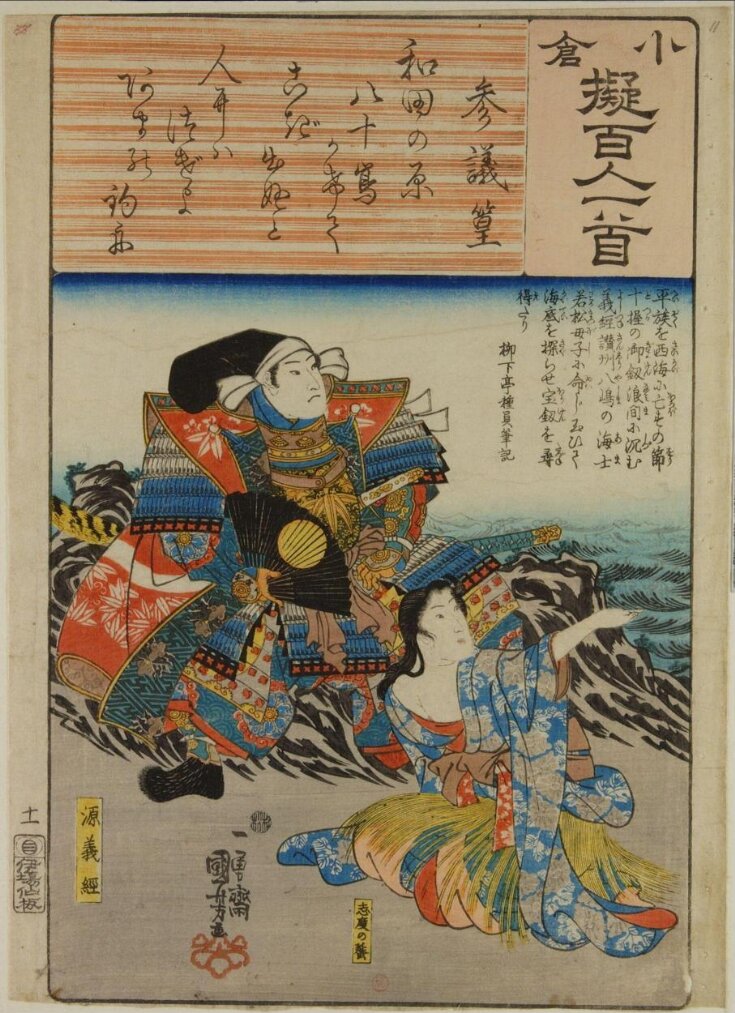 小倉
擬百人一首
参議篁
和田の原
八十嶌
かけて
こぎ出ぬと
人丹ハ
つげよ
阿まの
釣舟
平族を西海に亡すの節
十握の御釼浪間に沈む
義經讃州八嶋の海士
若松母子に命じ玉ひて
海底を探らせ宝釼を尋
得たり
柳下亭種員筆記
源義經
志度の蜑
一勇齋
國芳画
十一
伊場仙板